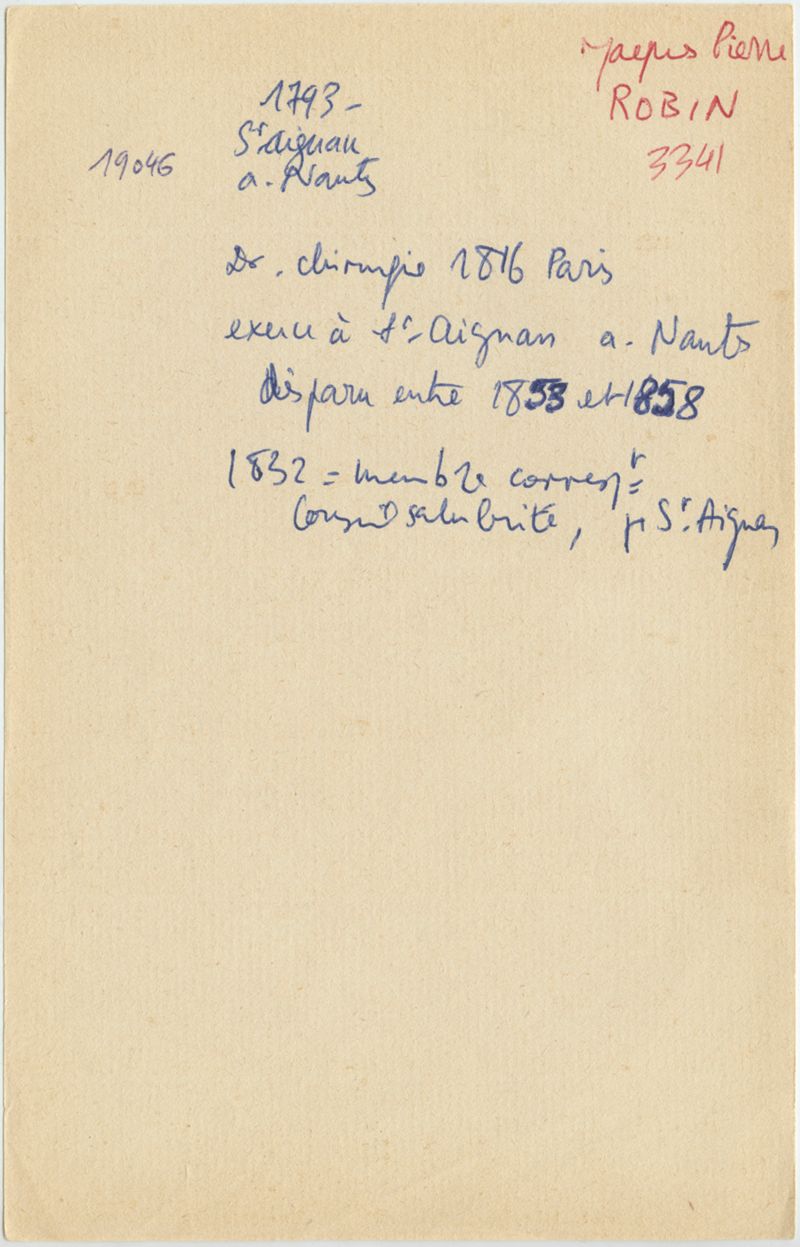 Jacques Pierre
ROBIN
3341
1793 -
St Aignan
19046
a. Nantes
Dr. chirurgie 1816 Paris
exerce à St-Aignan a. Nantes
disparu entre 1853 et 1858
1832 = membre correspr
Conseil salubrité, pr St. Aignan